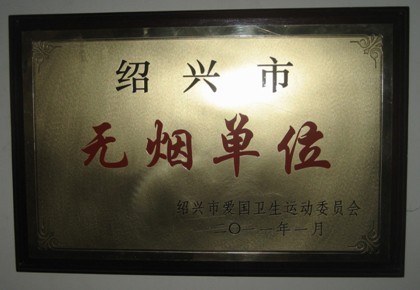 绍兴市
无烟单位
绍兴市爱国卫生运动委员会
二〇一一年一月